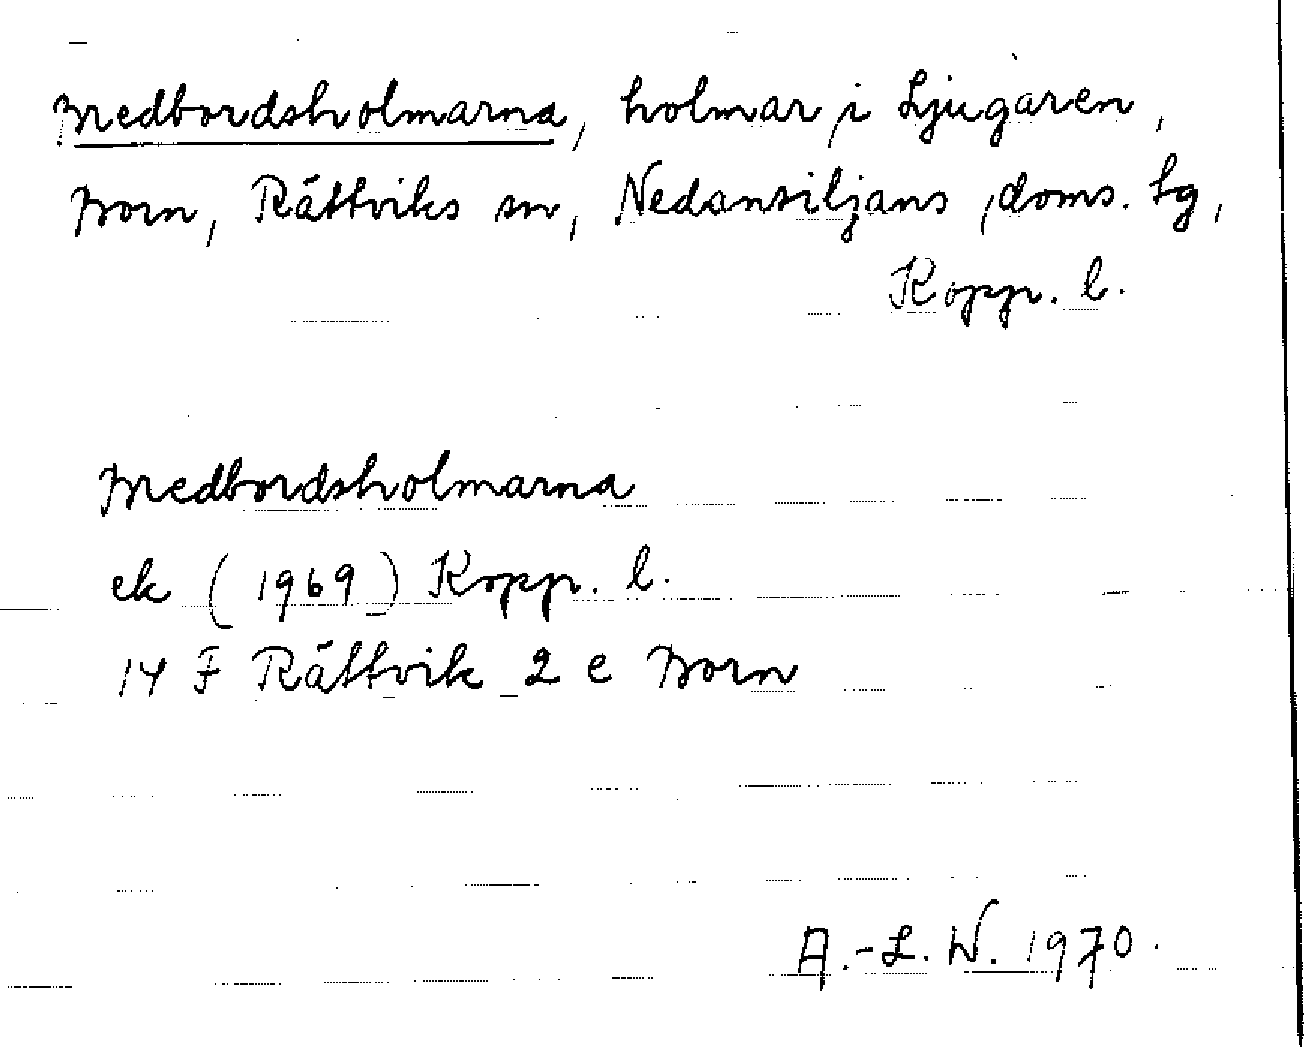 Medbordsholmarna, holmar i Ljugaren,
Born, Rättviks sn, Nedansiljans doms. tg,
Kopp. l.
Medbordsholmarna
ek (1969) Kopp. l.
14 F Rättvik 2 e Born
A.-L. W. 1970.